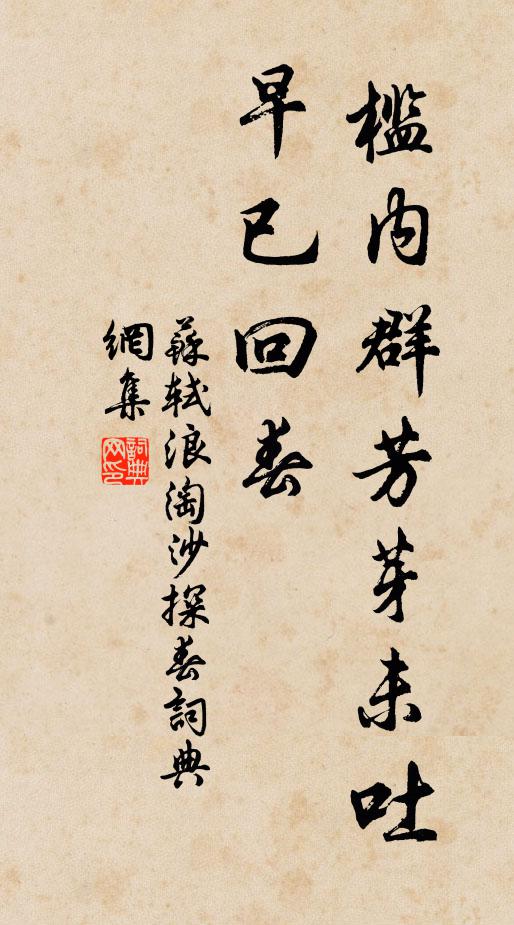 檻內群芳芽未吐
早已回春
蘇軾浪淘沙探春詞典
網集
詞典
网印